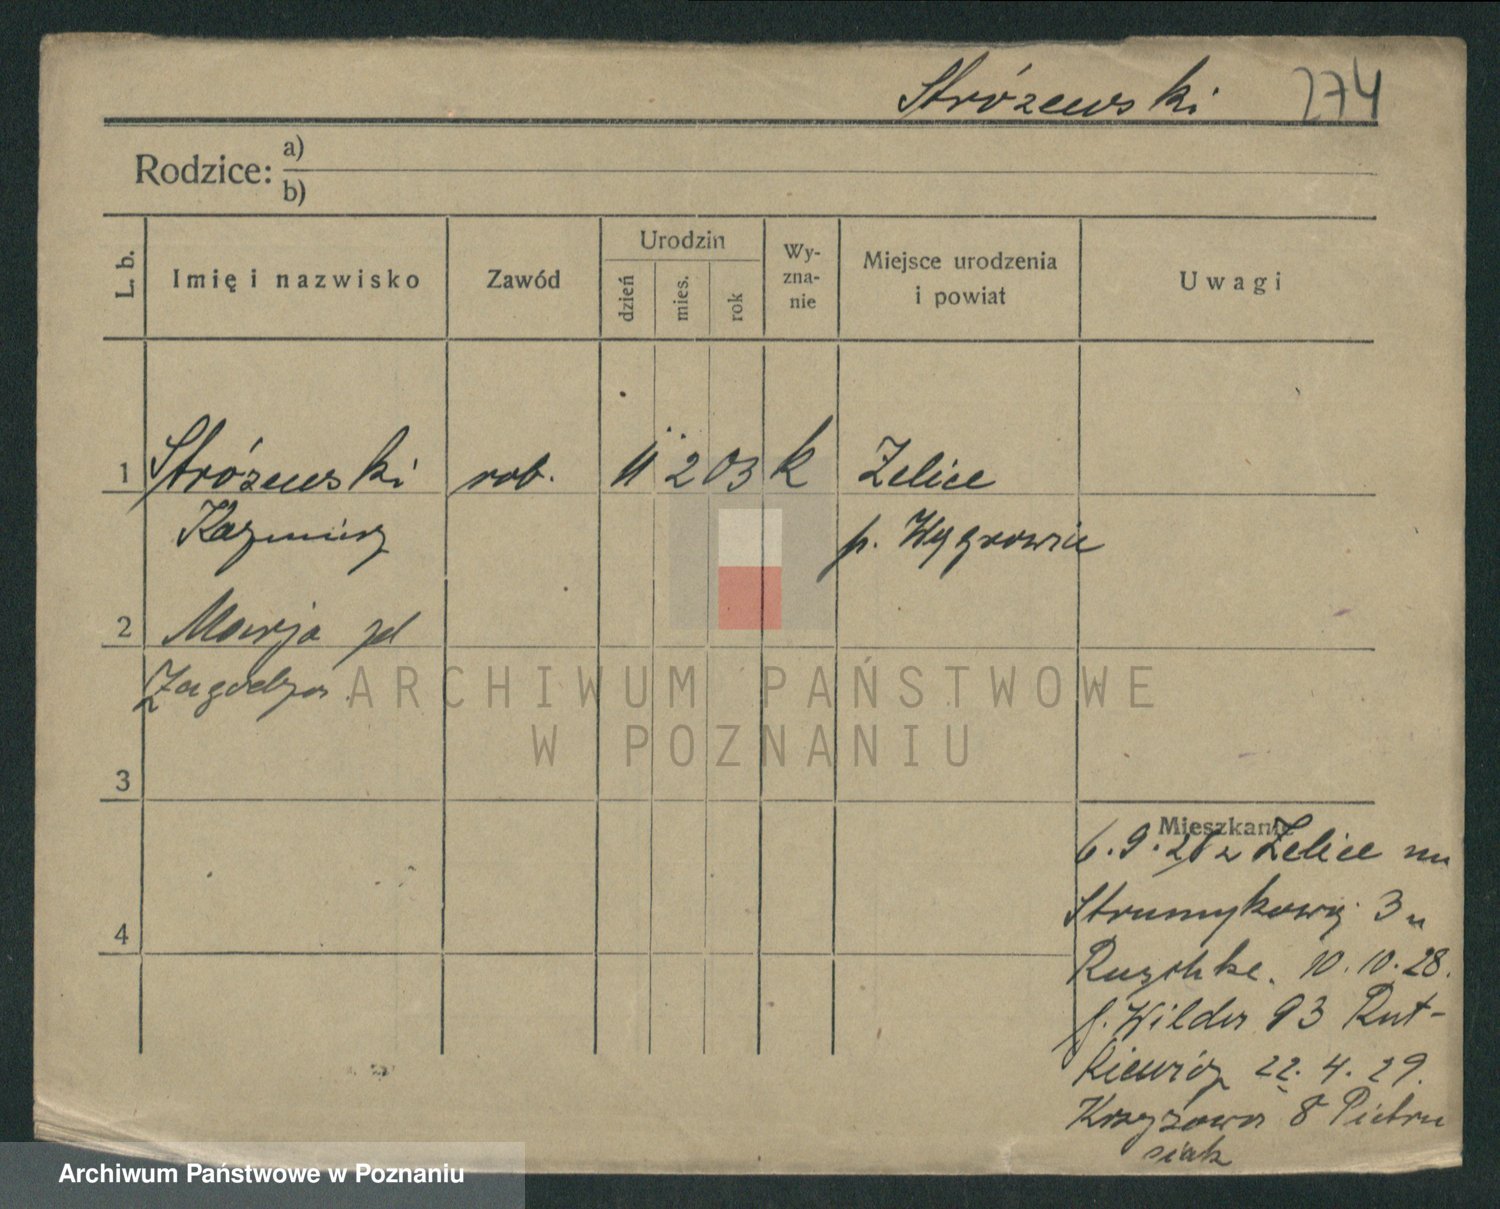 Stróżewski 274
Rodzice: a)
b)
L. b.
Imię i nazwisko
Zawód
Urodzin
dzień
mies.
rok
Wy-
zna-
nie
Miejsce urodzenia
i powiat
Uwagi
1 Stróżewski rob. 11 2 03 k Żelice
Kazmierz p. Wągrowiec
2 Marja zd
Zagodzon
3
4
Mieszkanie
6.9.28 z Żelice na
Strumykową 3 u
Ruschke. 10.10.28.
f. Wilder 93 Rut-
kiewicz 22.4.29.
Krzyżowa 8 Pietru
siak
ARCHIWUM PAŃSTWOWE
W POZNANIU
Archiwum Państwowe w Poznaniu